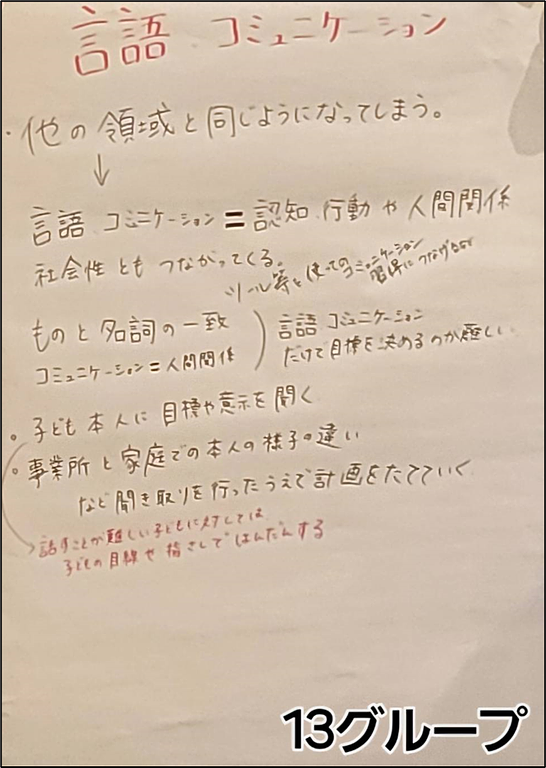 言語 コミュニケーション
・他の領域と同じようになってしまう。
↓
言語 コミュニケーション = 認知 行動や人間関係
社会性ともつながってくる。
ツール等を使ってのコミュニケーション
ものと名詞の一致
コミュニケーション=人間関係
言語 コミュニケーション
だけで目標を決めるのが難しい
。子ども本人に目標や意示を聞く
。事業所と家庭での本人の様子の違い
など聞き取りを行ったうえで計画をたてていく
話すことが難しい子どもに対しては
子どもの目線や指さしではんだんする
13グループ